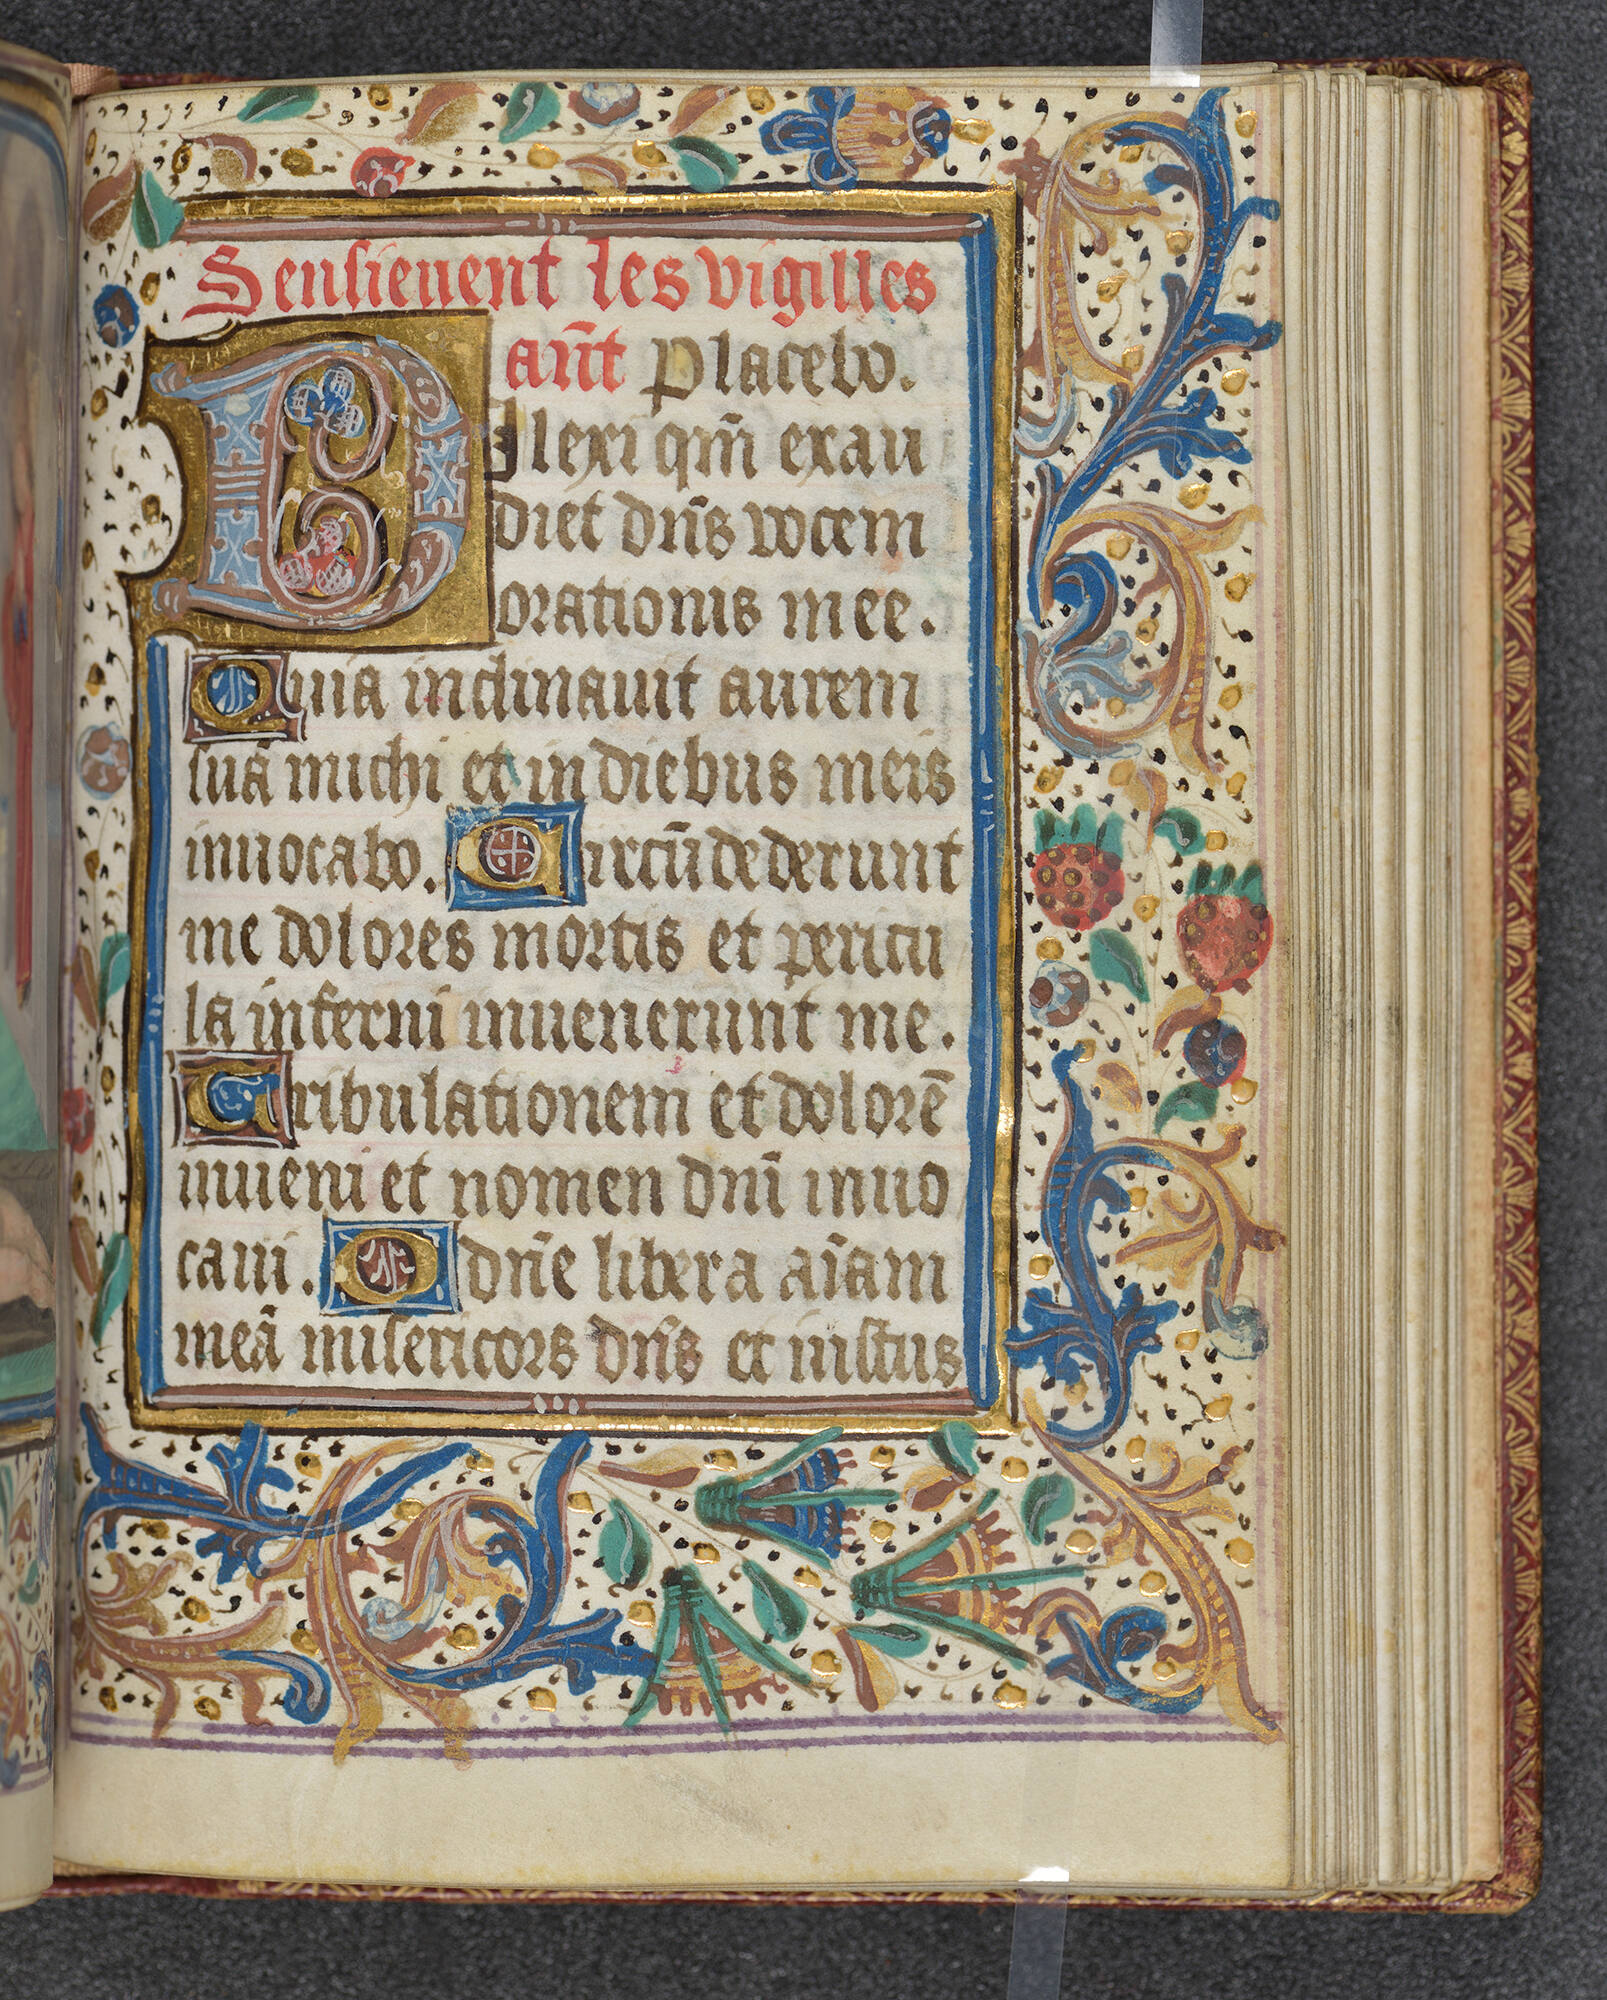 Sensieuent les vigilles
an̄t Placebo.
Dilexi qm̄ exau
diet dn̄s vocem
orationis mee.
Quia inclinauit aurem
suā michi et in diebus meis
inuocabo. Circūdederunt
me dolores mortis et pericu
la inferni inuenerunt me.
Tribulationem et dolorē
inueni et nomen dn̄i inuo
caui. O dn̄e libera aīam
meā misericors dn̄s et iustus